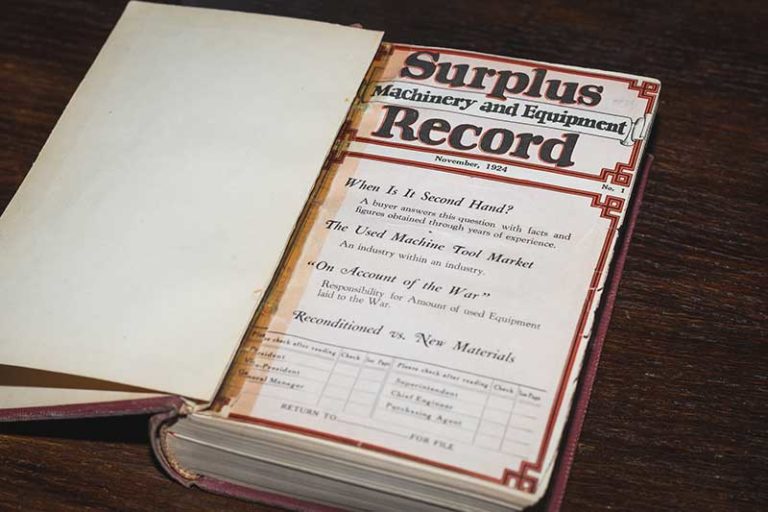 Surplus
Machinery and Equipment
Record
November, 1924
No. 1
When Is It Second Hand?
A buyer answers this question with facts and
figures obtained through years of experience.
The Used Machine Tool Market
An industry within an industry.
"On Account of the War"
Responsibility for Amount of used Equipment
laid to the War.
Reconditioned vs. New Materials
Please check after reading Check See Page Please check after reading Check See Page
President Superintendent
Vice-President Chief Engineer
General Manager Purchasing Agent
RETURN TO FOR FILE